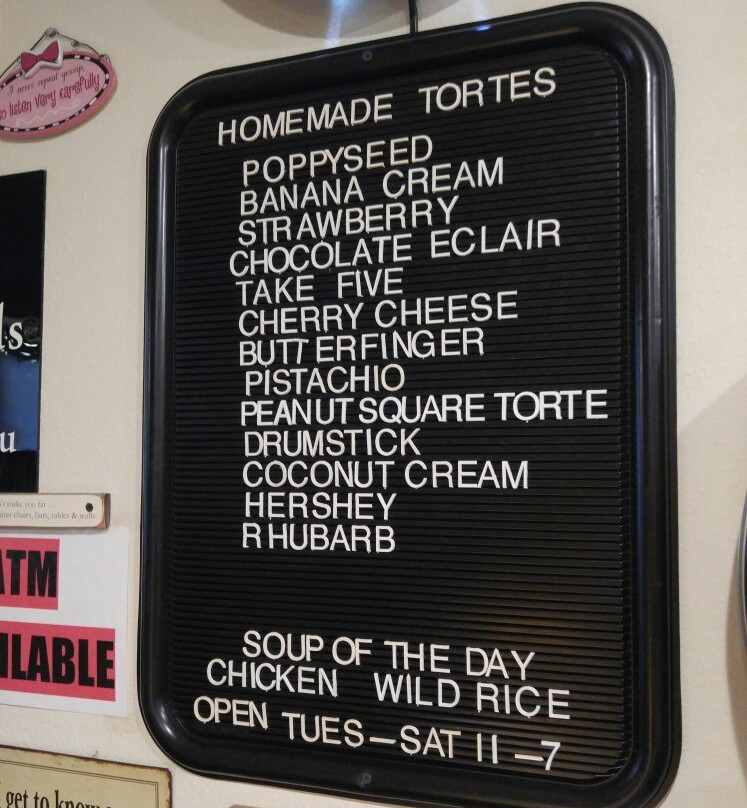 I never repeat gossip
so listen very carefully
HOMEMADE TORTES
POPPYSEED
BANANA CREAM
STRAWBERRY
CHOCOLATE ECLAIR
TAKE FIVE
CHERRY CHEESE
BUTTERFINGER
PISTACHIO
PEANUT SQUARE TORTE
DRUMSTICK
COCONUT CREAM
HERSHEY
RHUBARB
SOUP OF THE DAY
CHICKEN WILD RICE
OPEN TUES-SAT 11-7
ls
u
make you fat ...
chairs, bars, tables & walls.
ATM
ILABLE
get to know